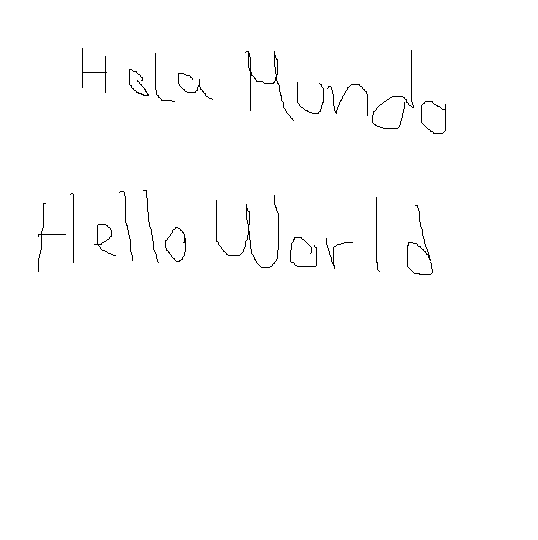 Hola Mundo
Hello World